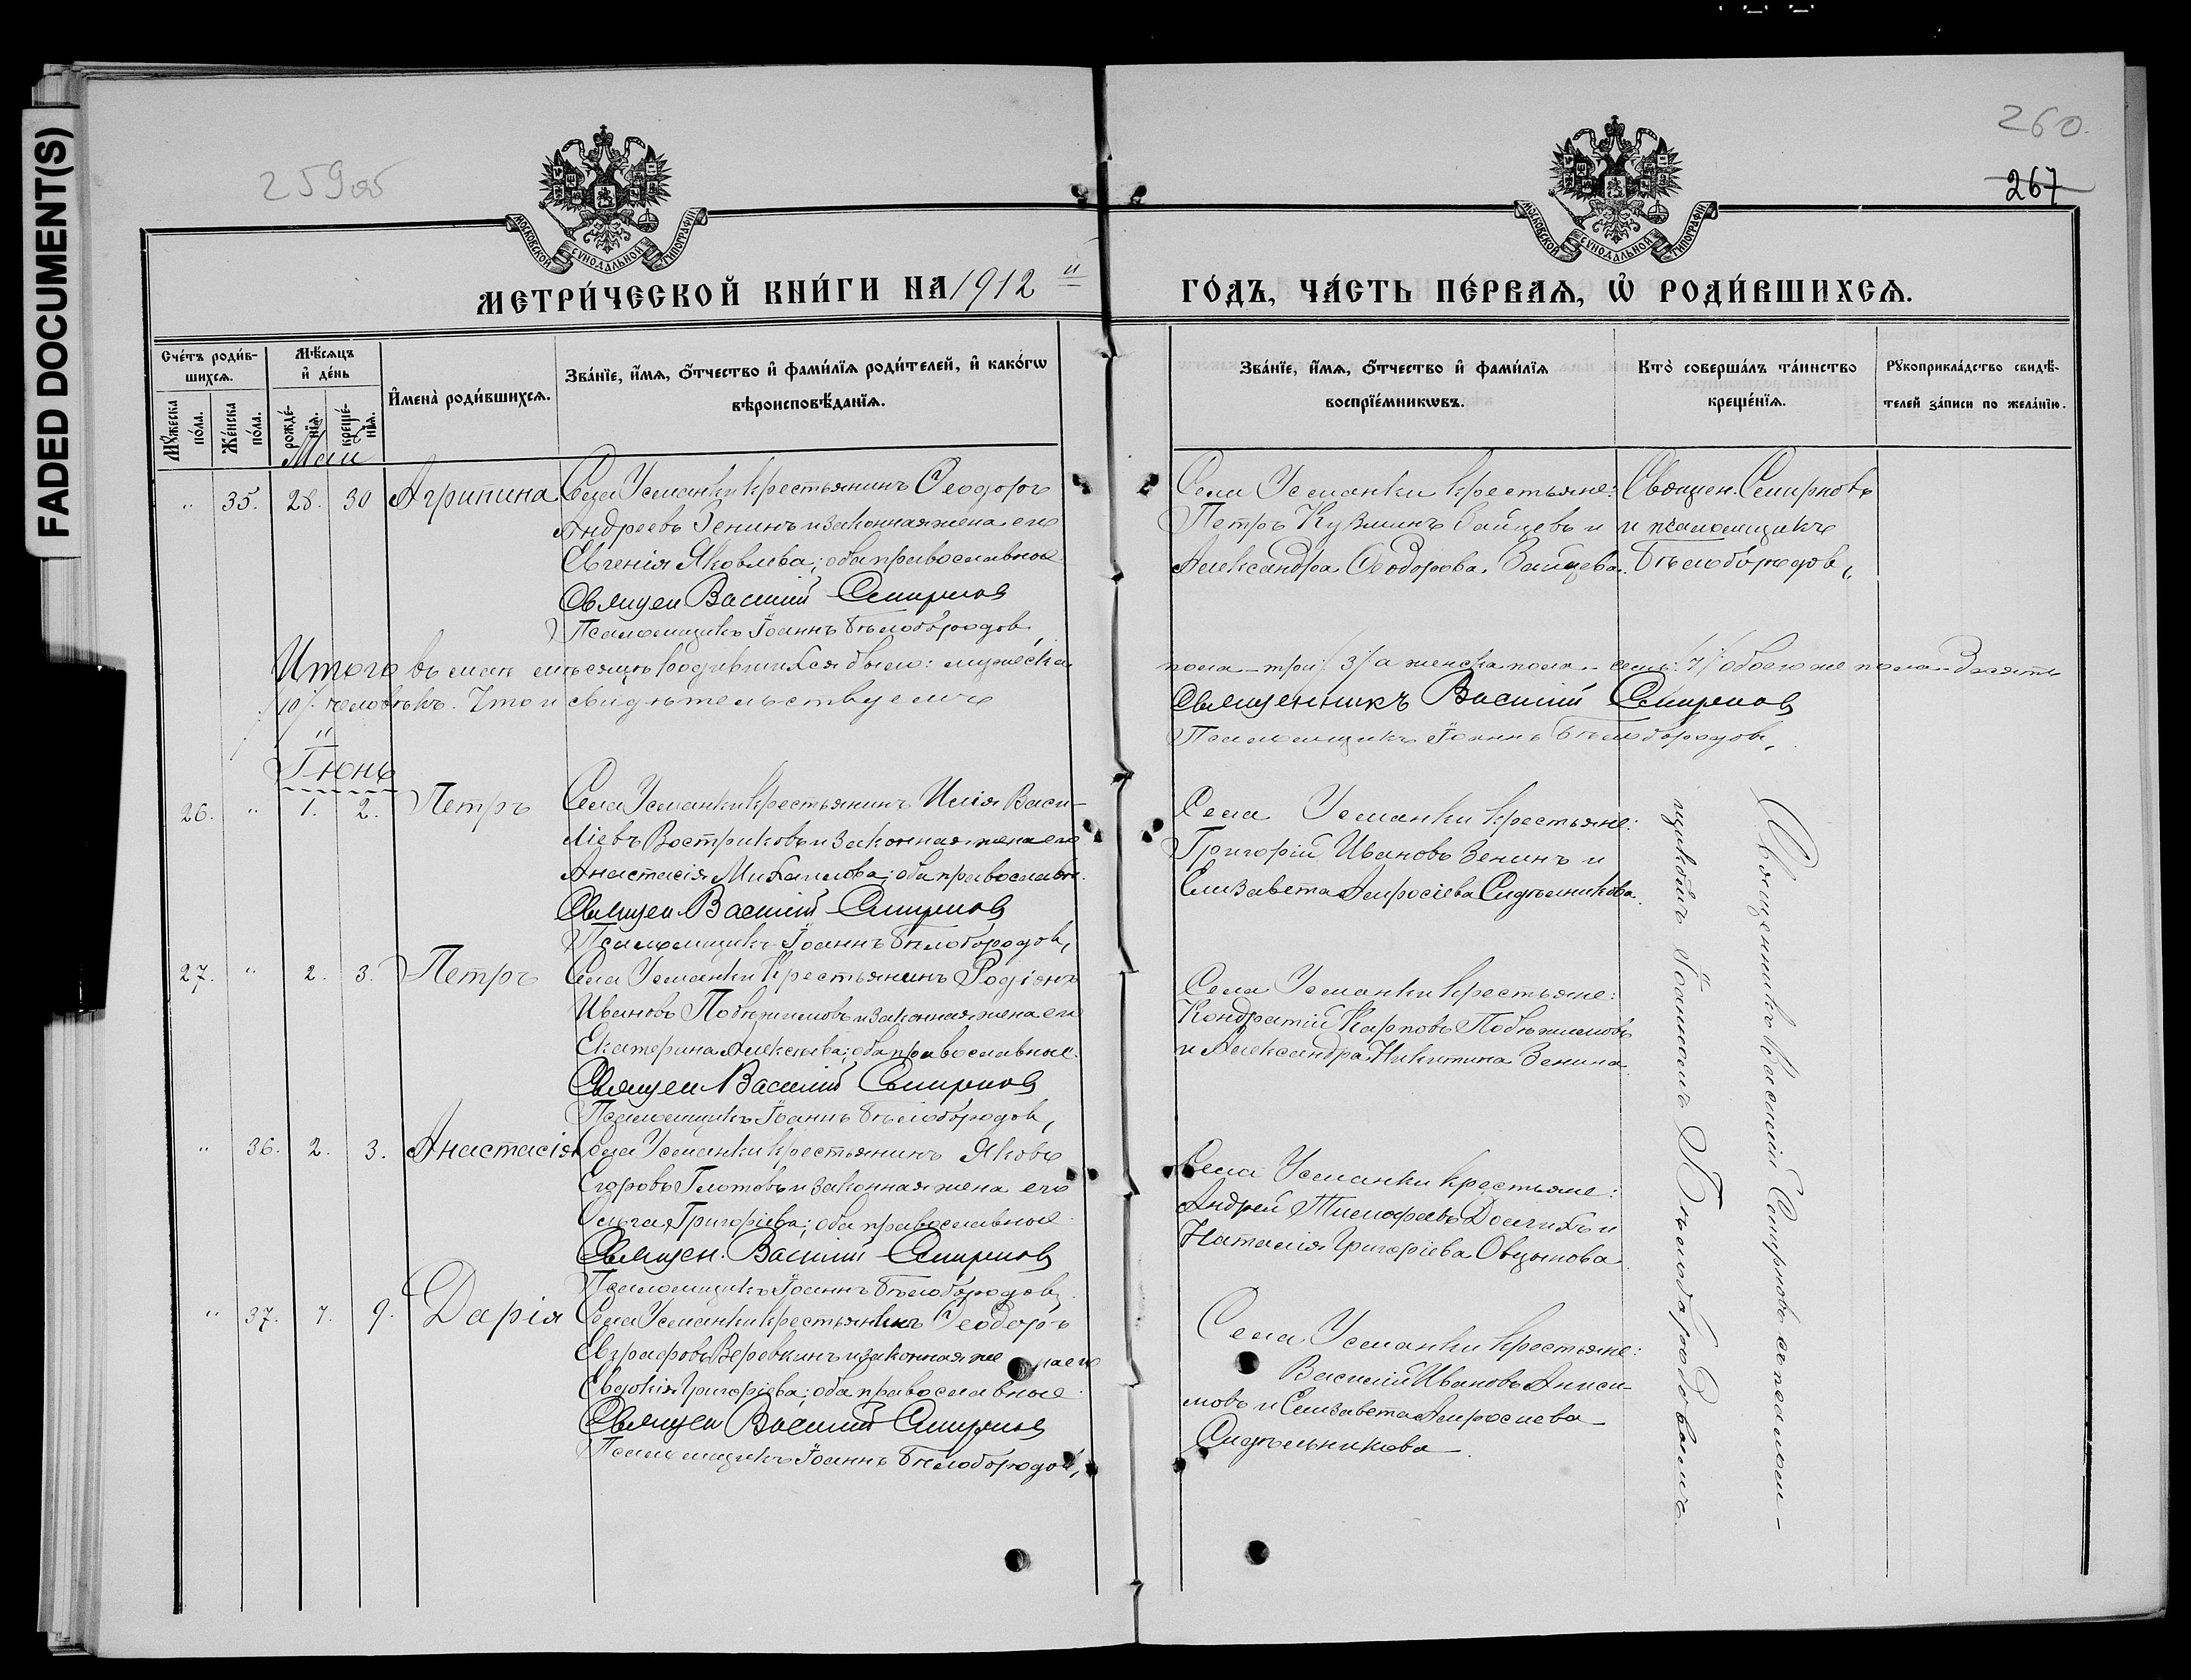 FADED DOCUMENT(S)
259об
260.
267
МОСКОВСКОЙ СѴНОДАЛЬНОЙ ТИПОГРАФІИ
МОСКОВСКОЙ СѴНОДАЛЬНОЙ ТИПОГРАФІИ
МЕТРИ́ЧЕСКОЙ КНИ́ГИ НА 1912 й
ГО́ДЪ, ЧА́СТЬ ПЕ́РВАѦ, Ѡ҆ РОДИ́ВШИХСѦ.
Сче́тъ роди́в-
шихсѧ.
Мꙋ́жеска по́ла.
Же́нска по́ла.
Мѣ́сѧцъ
и҆ де́нь
рожде́-
нїѧ.
креще́-
нїѧ.
И҆мена̀ роди́вшихсѧ.
Зва́нїе, и҆́мѧ, ѻ҆́тчество и҆ фами́лїѧ роди́телей, и҆ како́гѡ
вѣроисповѣ́данїѧ.
Зва́нїе, и҆́мѧ, ѻ҆́тчество и҆ фами́лїѧ
воспрїе́мникѡвъ.
Кто̀ соверша́лъ та́инство
креще́нїѧ.
Рꙋкоприкла́дство свидѣ́-
телей за́писи по жела́нїю.
Май
" 35. 28. 30 Агрипина
Села Усманки крестьянинъ Ѳеодоръ
Андреевъ Зенинъ и законная жена его
Евгенія Яковлева; оба православные
Священ Василій Смирнов
Псаломщикъ Іоаннъ Бѣлобородов,
Села Усманки крестьяне:
Петръ Кузминъ Зайцевъ и
Александра Ѳеодорова Зайцева.
Священ. Смирновъ
и псаломщикъ
Бѣлобородов,
Итого въ маѣ мѣсяцѣ родившихся было: мужеска
пола – три /3/ а женска пола – семь /7/ обоего же пола – Десять
/10/ человѣкъ. Что и свидѣтельствуемъ
Священникъ Василій Смирнов
Псаломщикъ Іоаннъ Бѣлобородов,
Іюнь
26. " 1. 2. Петръ
Села Усманки крестьянинъ Илія Васи-
ліевъ Востриковъ и законная жена его
Анастасія Михаилова; оба православн.
Священ Василій Смирнов
Псаломщикъ Іоаннъ Бѣлобородов,
Села Усманки крестьяне:
Григорій Ивановъ Зенинъ и
Елизавета Амросіева Сидѣльникова.
27. " 2. 3. Петръ
Села Усманки крестьянинъ Родіонъ
Ивановъ Побѣжимовъ и законная жена его
Екатерина Алексѣева; оба православные.
Священ Василій Смирнов
Псаломщикъ Іоаннъ Бѣлобородов,
Села Усманки крестьяне:
Кондратій Карповъ Побѣжимовъ
и Александра Никитина Зенина
" 36. 2. 3. Анастасія
Села Усманки крестьянинъ Яковъ
Егоровъ Глотовъ и законная жена его
Ольга Григоріева; оба православные
Священ. Василій Смирнов
Псаломщикъ Іоаннъ Бѣлобородов,
Села Усманки крестьяне:
Андрей Тимофеевъ Долгихъ и
Наталія Григоріева Овцынова
" 37. 7. 9. Дарія
Села Усманки крестьянинъ Ѳеодоръ
Евграфовъ Веревкинъ и законная жена его
Евдокія Григоріева; оба православные
Священ Василій Смирнов
Псаломщикъ Іоаннъ Бѣлобородов,
Села Усманки крестьяне:
Василій Ивановъ Аниси-
мовъ и Елизавета Амросиева
Сидѣльникова.
Священникъ Василій Смирновъ съ псалом-
щикомъ Іоанномъ Бѣлобородовымъ.